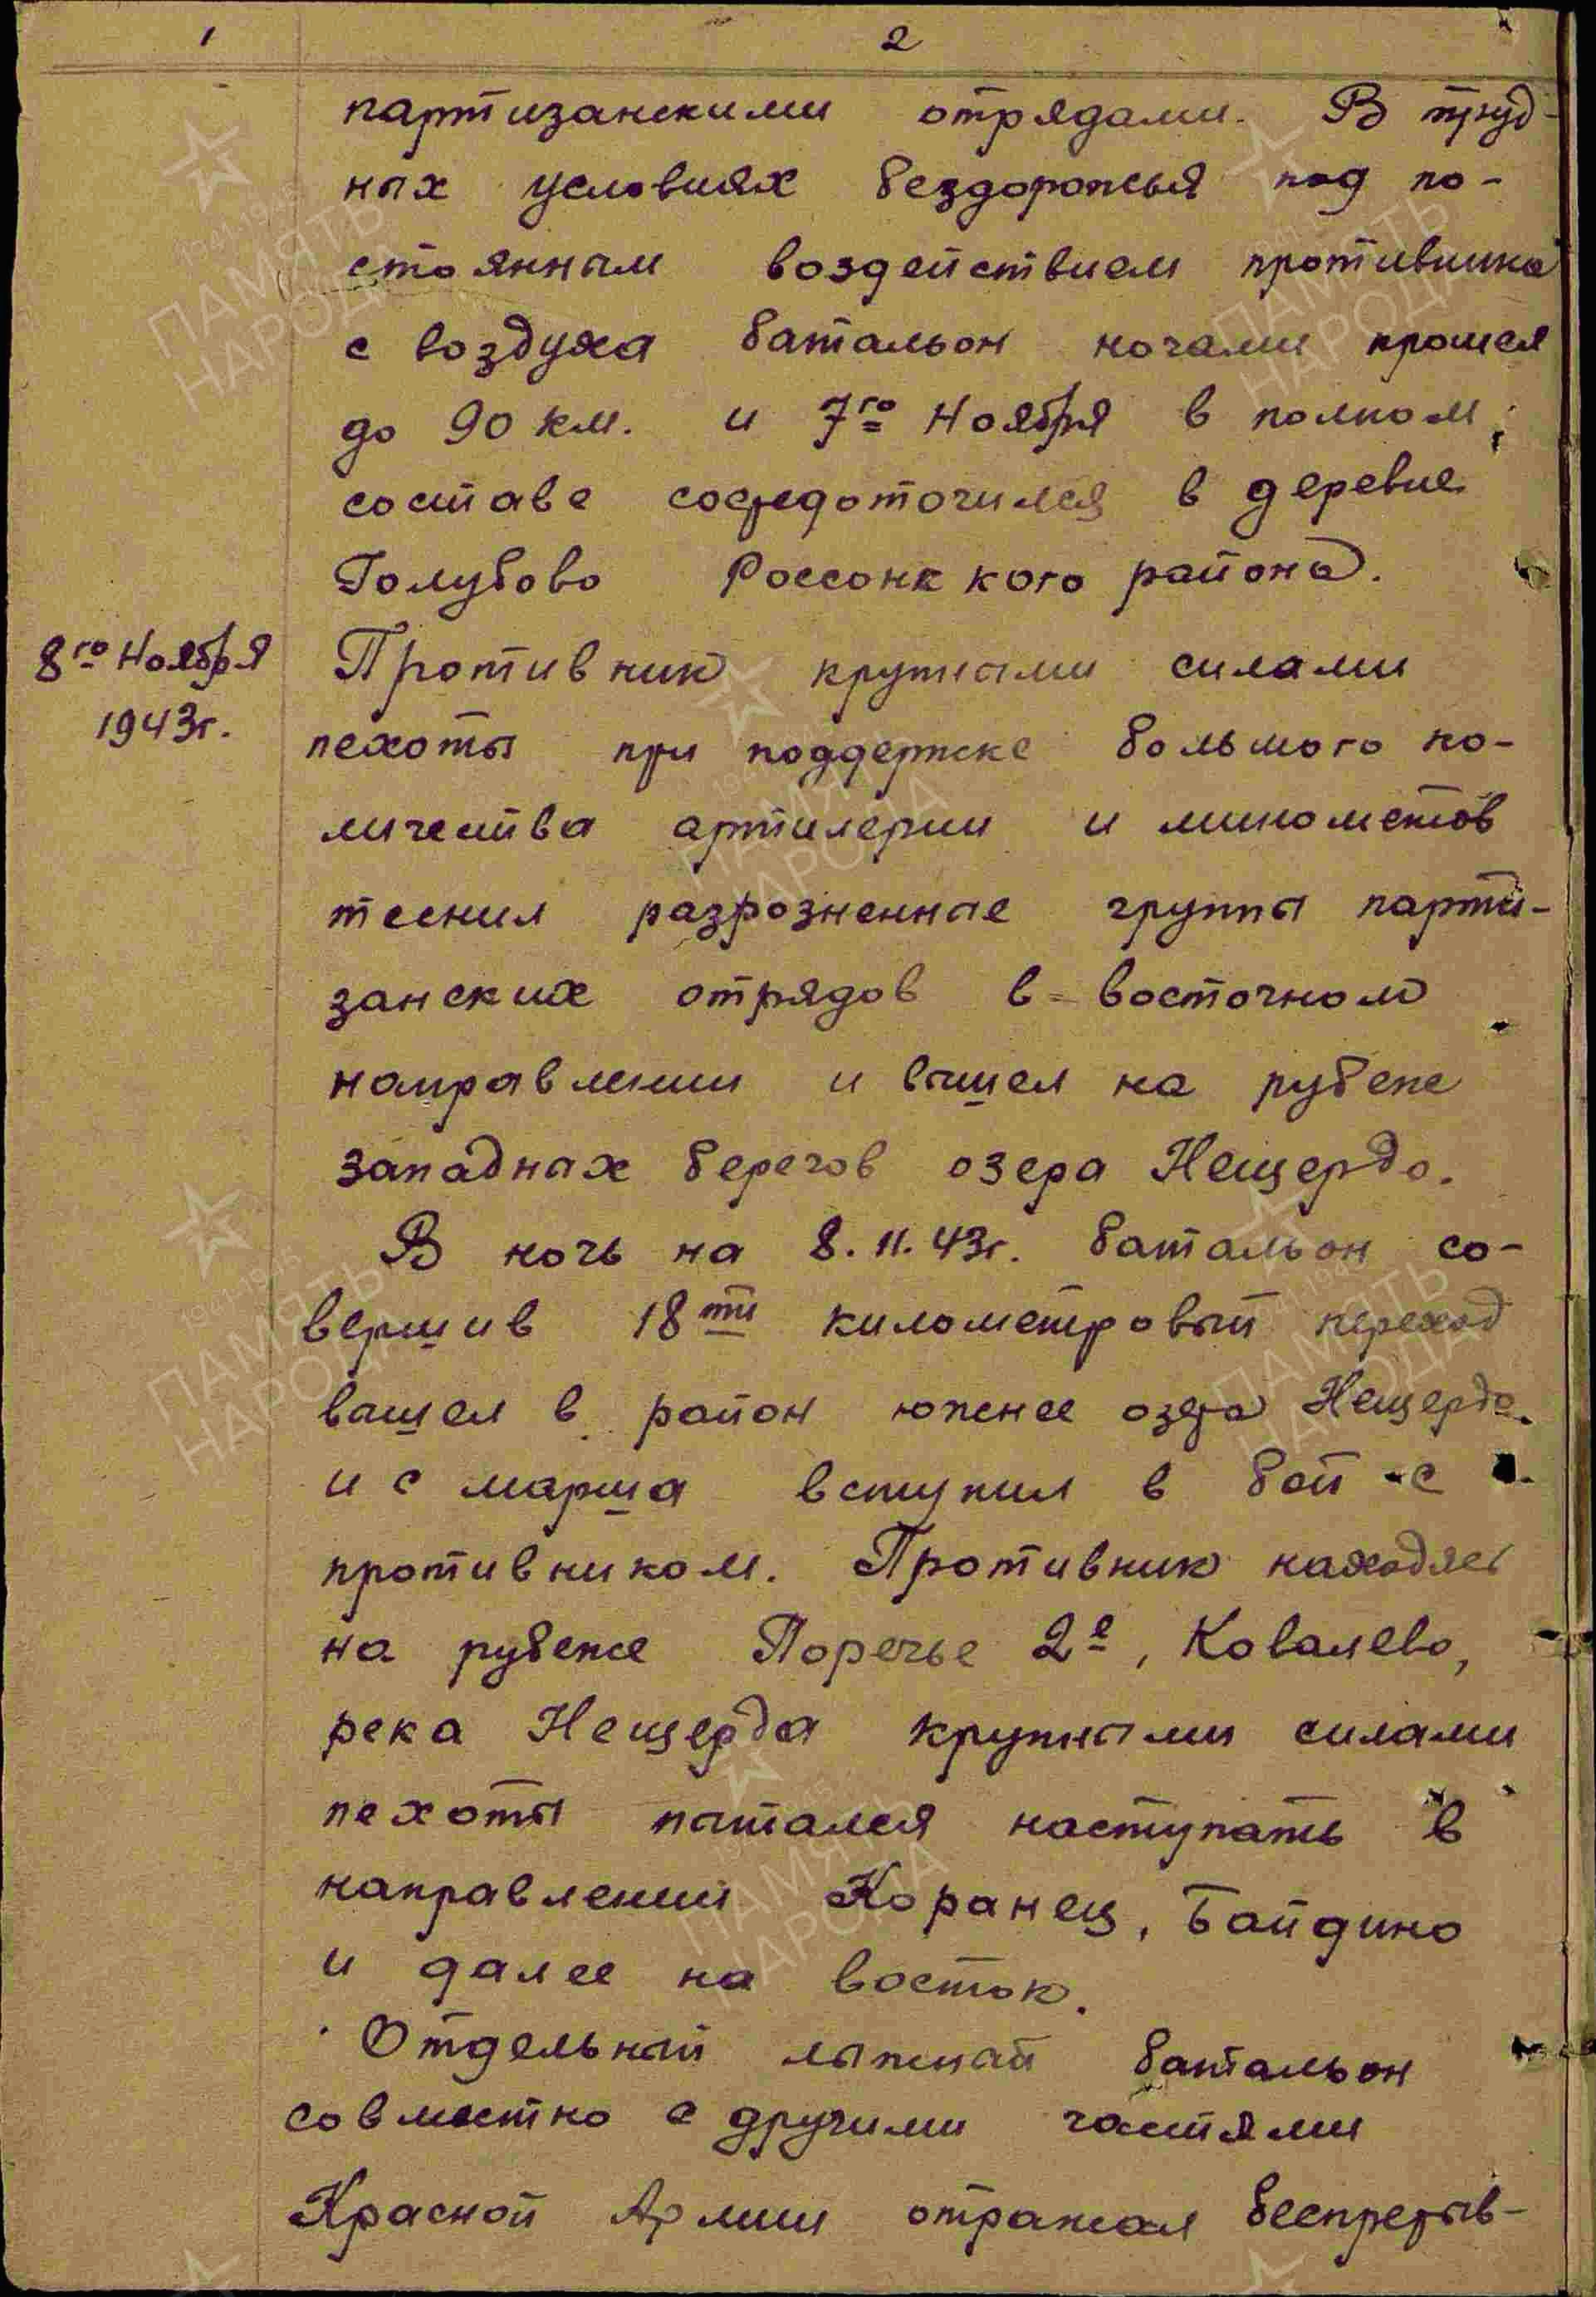 1 2
партизанскими отрядами. В труд-
ных условиях бездорожья под по-
стоянным воздействием противника
с воздуха батальон ночами прошел
до 90 км. и 7го Ноября в полном
составе сосредоточился в деревне
Голубово Россонкского района.
8го Ноября Противник крупными силами
1943г. пехоты при поддержке большого ко-
личества артилерии и минометов
теснил разрозненные группы парти-
занских отрядов в восточном
направлении и вышел на рубеже
западных берегов озера Нещердо.
В ночь на 8.11.43г. батальон со-
вершив 18ти километровый переход
вышел в район южнее озера Нещердо.
и с марша вступил в бой с
противником. Противник находясь
на рубеже Поречье 2е, Ковалево,
река Нещерда крупными силами
пехоты пытался наступать в
направлении Коранец, Байдино
и далее на восток.
Отдельный лыжный батальон
совместно с другими частями
Красной Армии отражал беспрерыв-
ПАМЯТЬ
НАРОДА